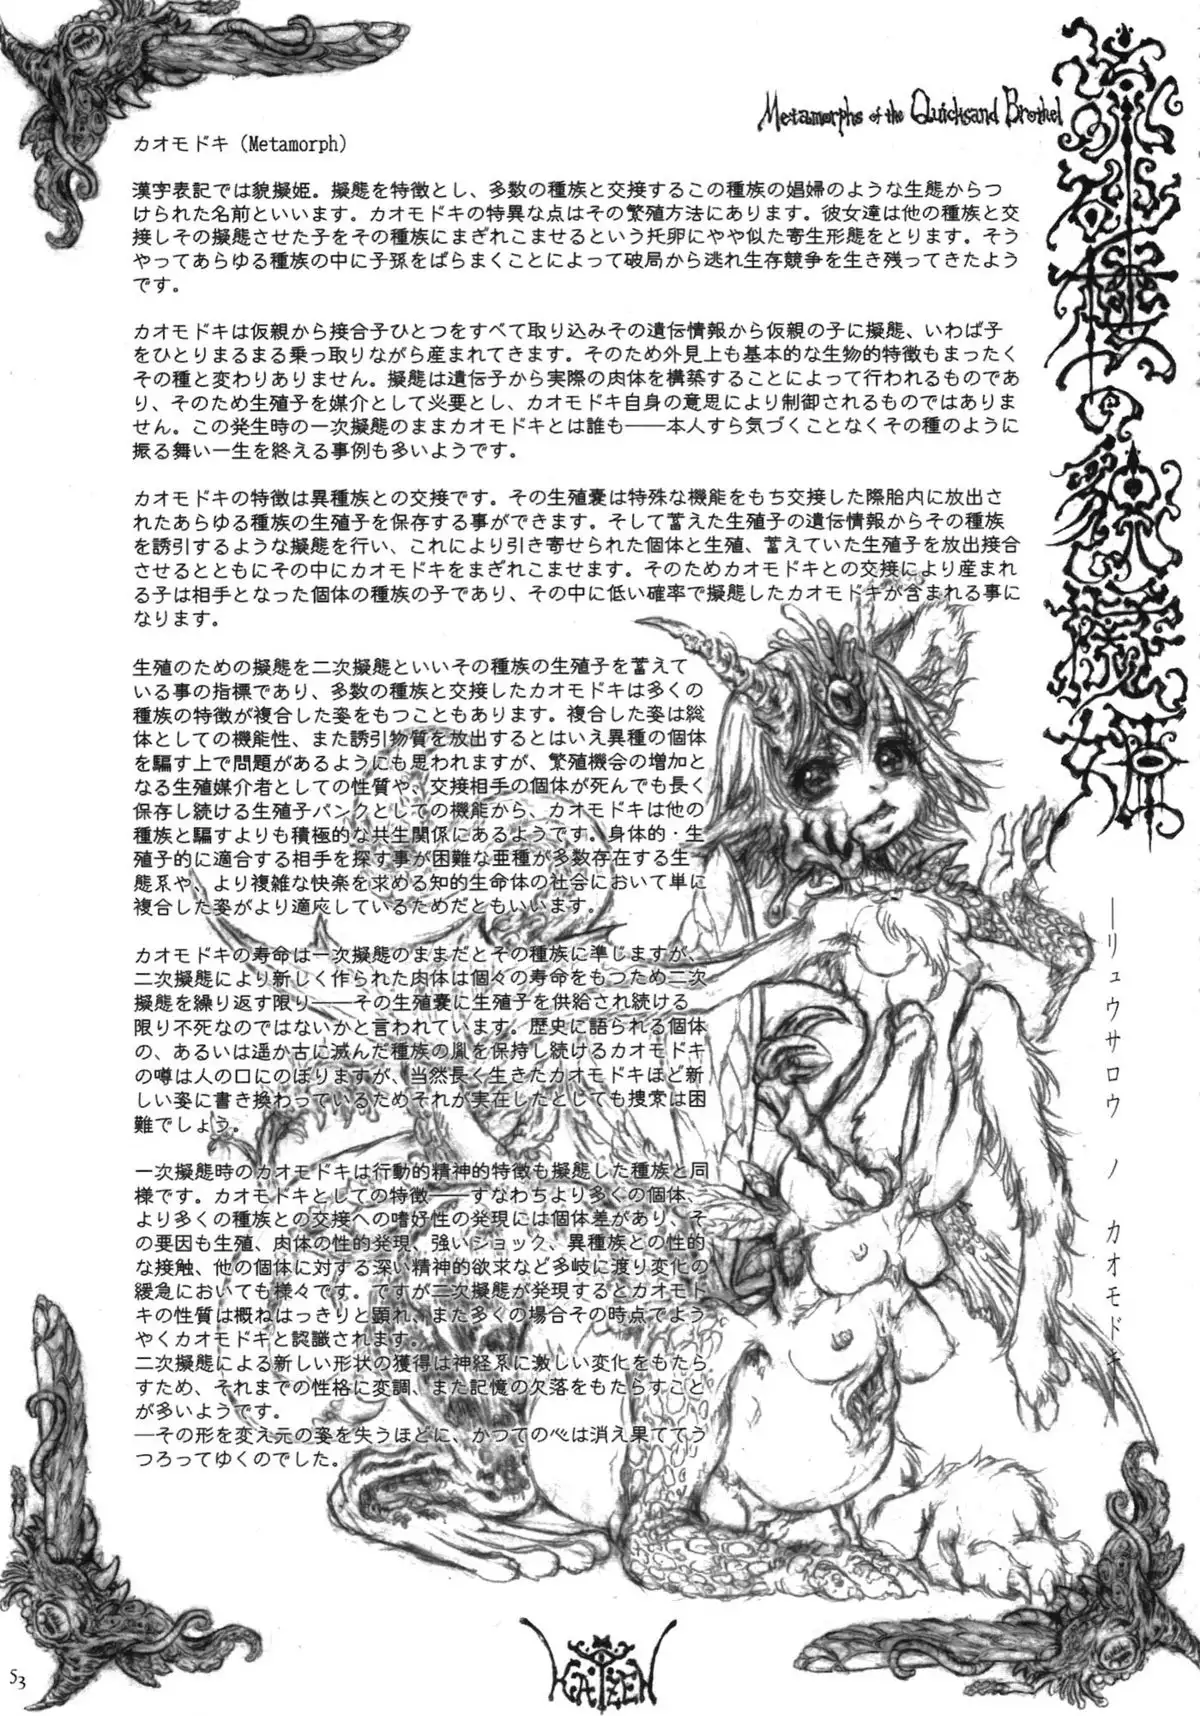 Metamorphs of the Quicksand Brothel
カオモドキ (Metamorph)
漢字表記では貌擬姫。擬態を特徴とし、多数の種族と交接するこの種族の娼婦のような生態からつ
けられた名前といいます。カオモドキの特異な点はその繁殖方法にあります。彼女達は他の種族と交
接しその擬態させた子をその種族にまぎれこませるという托卵にやや似た寄生形態をとります。そう
やってあらゆる種族の中に子孫をばらまくことによって破局から逃れ生存競争を生き残ってきたよう
です。
カオモドキは仮親から接合子ひとつをすべて取り込みその遺伝情報から仮親の子に擬態、いわば子
をひとりまるまる乗っ取りながら産まれてきます。そのため外見上も基本的な生物的特徴もまったく
その種と変わりありません。擬態は遺伝子から実際の肉体を構築することによって行われるものであ
り、そのため生殖子を媒介として必要とし、カオモドキ自身の意思により制御されるものではありま
せん。この発生時の一次擬態のままカオモドキとは誰も――本人すら気づくことなくその種のように
振る舞い一生を終える事例も多いようです。
カオモドキの特徴は異種族との交接です。その生殖嚢は特殊な機能をもち交接した際胎内に放出さ
れたあらゆる種族の生殖子を保存する事ができます。そして蓄えた生殖子の遺伝情報からその種族
を誘引するような擬態を行い、これにより引き寄せられた個体と生殖、蓄えていた生殖子を放出接合
させるとともにその中にカオモドキをまぎれこませます。そのためカオモドキとの交接により産まれ
る子は相手となった個体の種族の子であり、その中に低い確率で擬態したカオモドキが含まれる事に
なります。
生殖のための擬態を二次擬態といいその種族の生殖子を蓄えて
いる事の指標であり、多数の種族と交接したカオモドキは多くの
種族の特徴が複合した姿をもつこともあります。複合した姿は総
体としての機能性、また誘引物質を放出するとはいえ異種の個体
を騙す上で問題があるようにも思われますが、繁殖機会の増加と
なる生殖媒介者としての性質や、交接相手の個体が死んでも長く
保存し続ける生殖子バンクとしての機能から、カオモドキは他の
種族と騙すよりも積極的な共生関係にあるようです。身体的・生
殖子的に適合する相手を探す事が困難な亜種が多数存在する生
態系や、より複雑な快楽を求める知的生命体の社会において単に
複合した姿がより適応しているためだともいいます。
カオモドキの寿命は一次擬態のままだとその種族に準じますが、
二次擬態により新しく作られた肉体は個々の寿命をもつため二次
擬態を繰り返す限り――その生殖嚢に生殖子を供給され続ける
限り不死なのではないかと言われています。歴史に語られる個体
の、あるいは遥か古に滅んだ種族の胤を保持し続けるカオモドキ
の噂は人の口にのぼりますが、当然長く生きたカオモドキほど新
しい姿に書き換わっているためそれが実在したとしても捜索は困
難でしょう。
一次擬態時のカオモドキは行動的精神的特徴も擬態した種族と同
様です。カオモドキとしての特徴――すなわちより多くの個体、
より多くの種族との交接への嗜好性の発現には個体差があり、そ
の要因も生殖、肉体の性的発現、強いショック、異種族との性的
な接触、他の個体に対する深い精神的欲求など多岐に渡り変化の
緩急においても様々です。ですが二次擬態が発現するとカオモド
キの性質は概ねはっきりと顕れ、また多くの場合その時点でよう
やくカオモドキと認識されます。
二次擬態による新しい形状の獲得は神経系に激しい変化をもたら
すため、それまでの性格に変調、また記憶の欠落をもたらすこと
が多いようです。
―その形を変え元の姿を失うほどに、かつての心は消え果ててう
つろってゆくのでした。
―リュウサロウ ノ カオモドキ―
KAIZEN
53